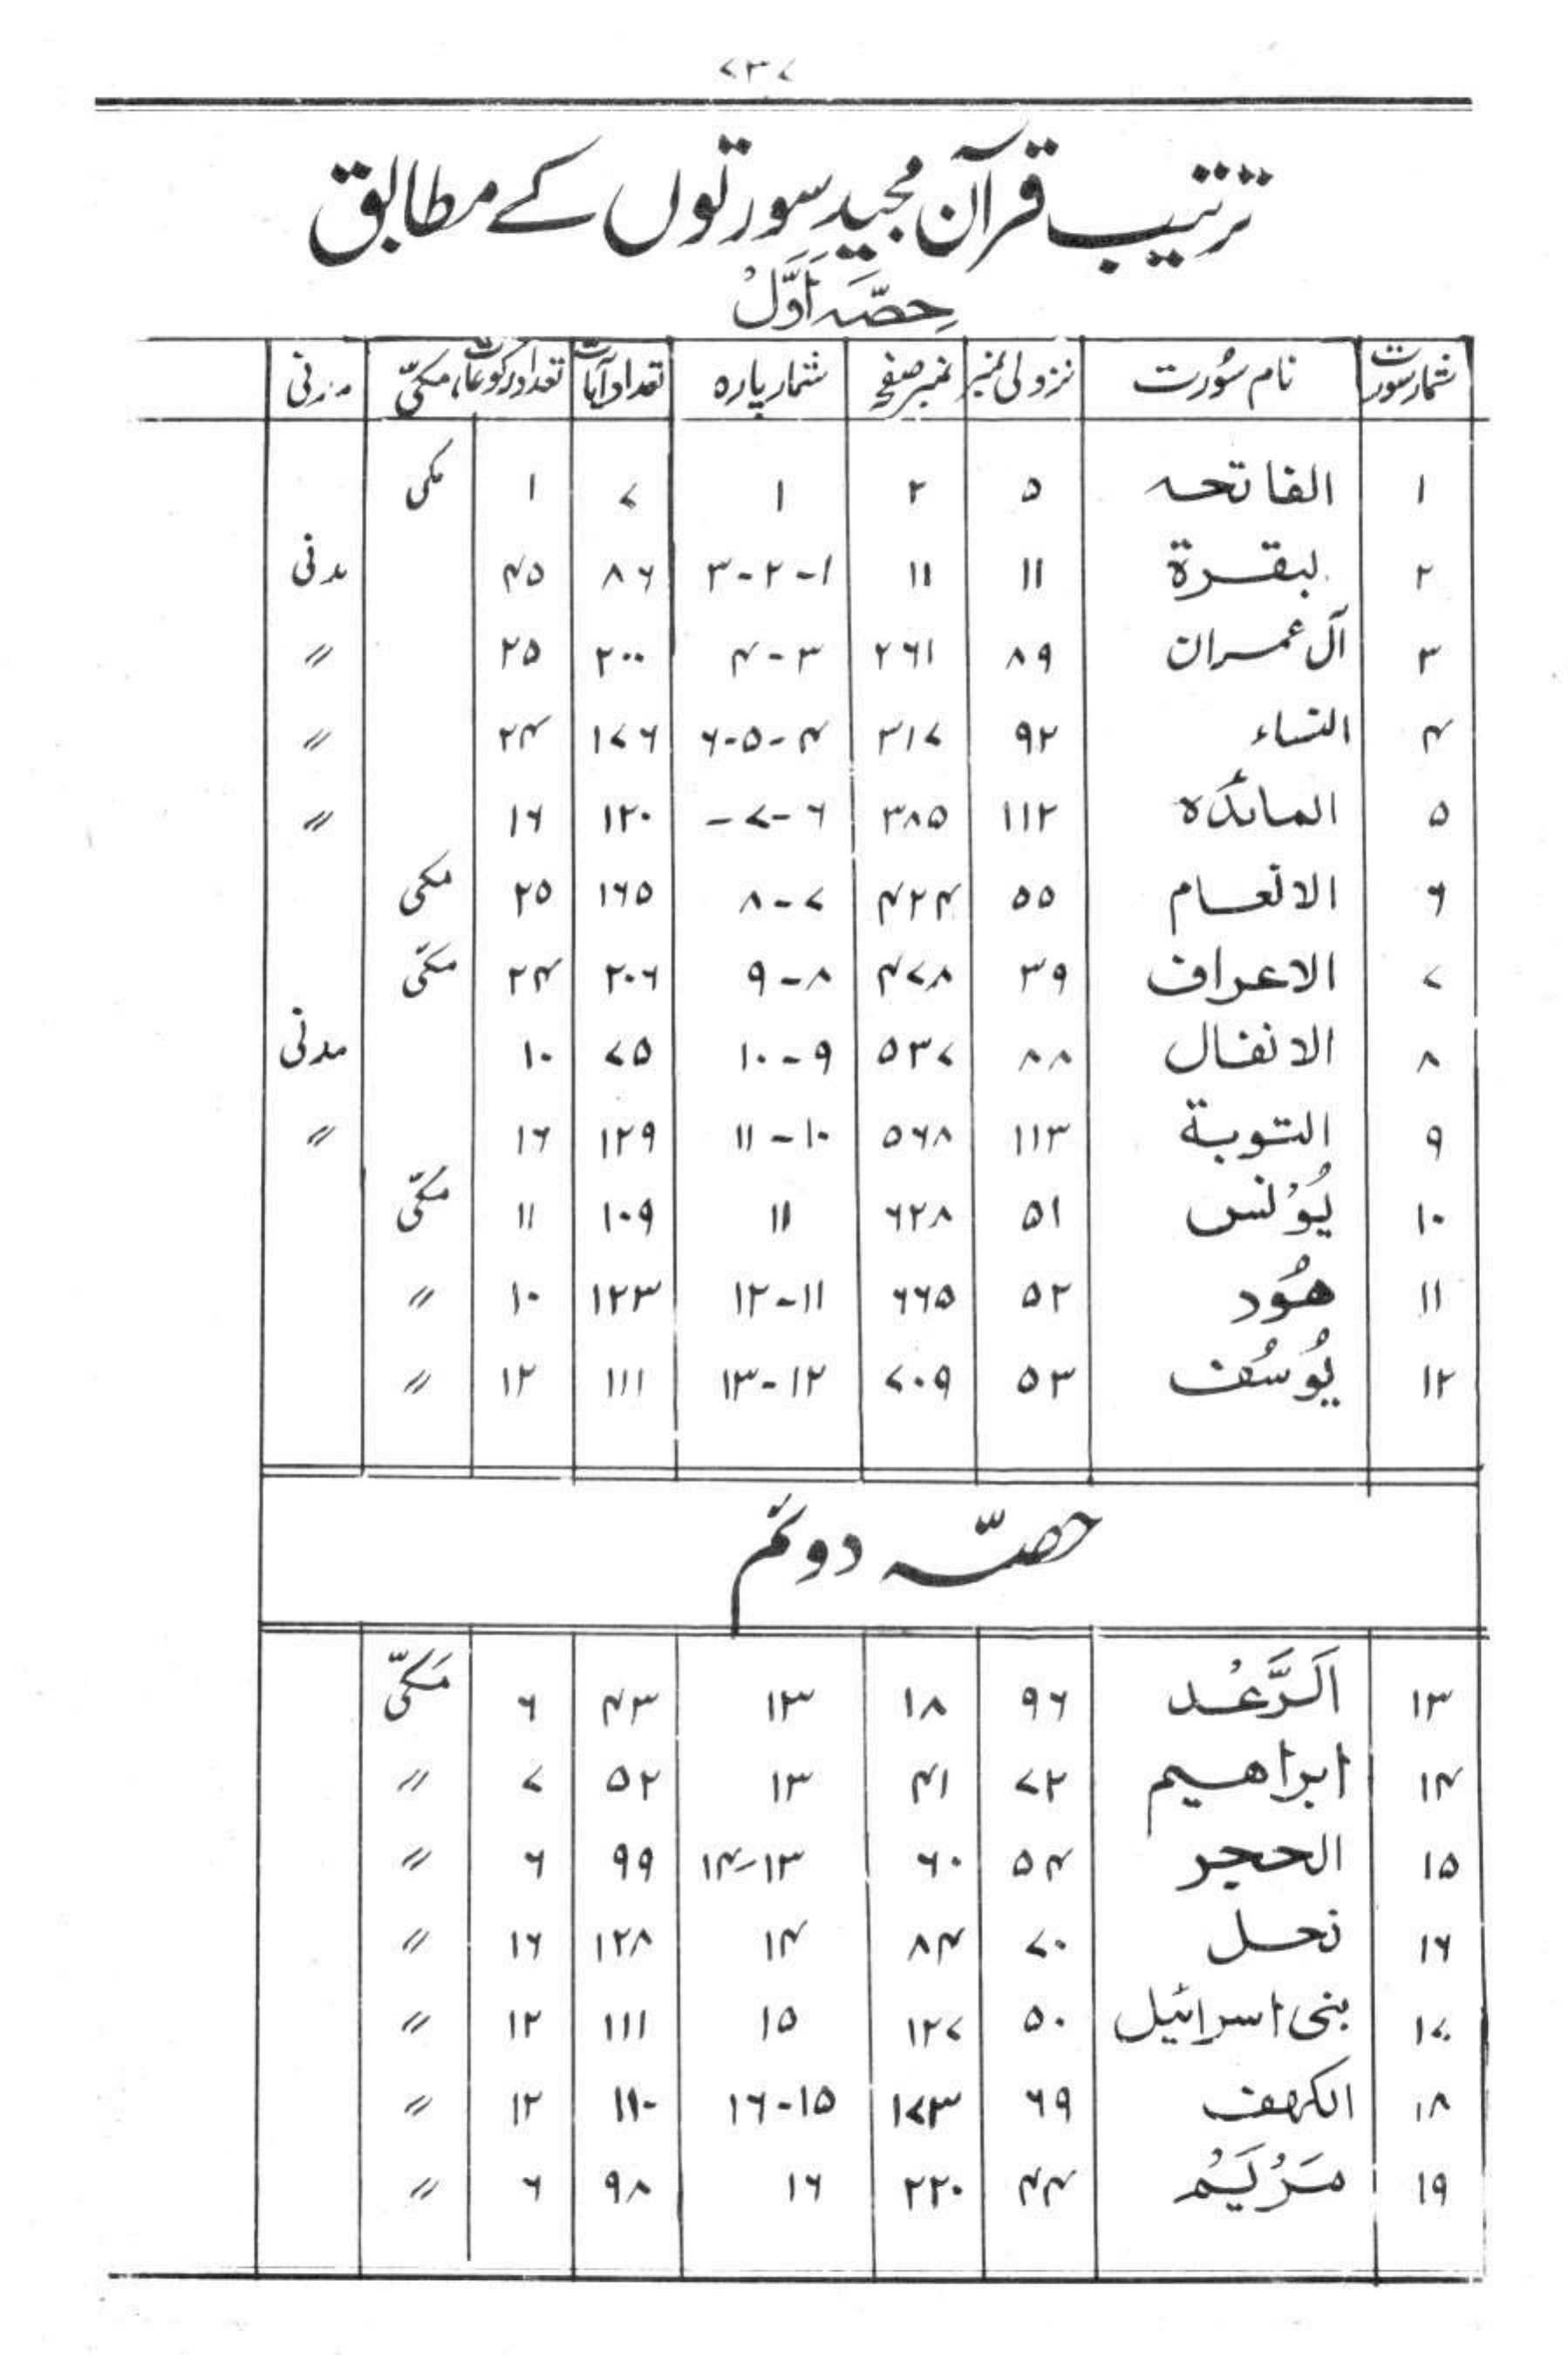 ۷۳۷
ترتیب قرآن مجید سورتوں کے مطابق
حصّہ اَوَّلْ
شمار سورت نام سُورت نزولی نمبر نمبر صفحہ شمار پارہ تعداد آیات تعداد رکوعات مکّی مدنی
۱ الفاتحہ ۵ ۲ ۱ ۷ ۱ مکی
۲ لبقرة ۱۱ ۱۱ ۱-۲-۳ ۸۶ ۴۵ مدنی
۳ آل عمران ۸۹ ۲۶۱ ۳-۴ ۲۰۰ ۲۵ 〃
۴ النساء ۹۲ ۳۱۷ ۴-۵-۶ ۱۷۶ ۲۴ 〃
۵ المائدہ ۱۱۲ ۳۸۵ ۶-۷- ۱۲۰ ۱۶ 〃
۶ الانعام ۵۵ ۴۲۴ ۷-۸ ۱۶۵ ۲۵ مکی
۷ الاعراف ۳۹ ۴۷۸ ۸-۹ ۲۰۶ ۲۴ مکّی
۸ الانفال ۸۸ ۵۳۷ ۹-۱۰ ۷۵ ۱۰ مدنی
۹ التوبة ۱۱۳ ۵۶۸ ۱۰-۱۱ ۱۲۹ ۱۶ 〃
۱۰ یُوْنس ۵۱ ۶۲۸ ۱۱ ۱۰۹ ۱۱ مکّی
۱۱ ھُود ۵۲ ۶۶۵ ۱۱-۱۲ ۱۲۳ ۱۰ 〃
۱۲ یُوسُف ۵۳ ۷۰۹ ۱۲-۱۳ ۱۱۱ ۱۲ 〃
حصّہ دوئم
۱۳ اَلرَّعْد ۹۶ ۱۸ ۱۳ ۴۳ ۶ مَکّی
۱۴ ابراھیم ۷۲ ۴۱ ۱۳ ۵۲ ۷ 〃
۱۵ الحجر ۵۴ ۶۰ ۱۳-۱۴ ۹۹ ۶ 〃
۱۶ نحل ۷۰ ۸۴ ۱۴ ۱۲۸ ۱۶ 〃
۱۷ بنی اسرائیل ۵۰ ۱۲۷ ۱۵ ۱۱۱ ۱۲ 〃
۱۸ الکھف ۶۹ ۱۷۳ ۱۵-۱۶ ۱۱۰ ۱۲ 〃
۱۹ مَرْیَمْ ۴۴ ۲۲۰ ۱۶ ۹۸ ۶ 〃